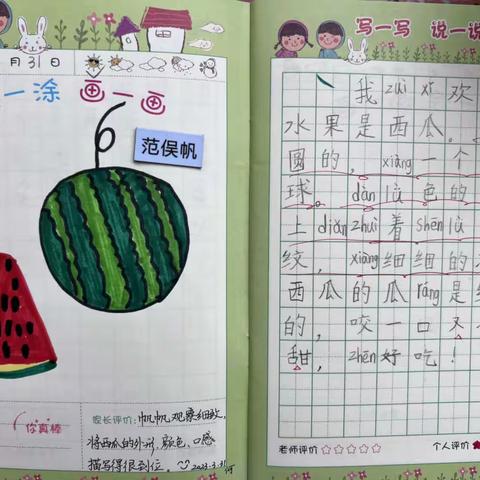 月31日
一涂 画一画
范俣帆
你真棒
家长评价:帆帆观察细致,
将西瓜的外形、颜色、口感
描写得很到位。2023.3.31
写一写 说一说
我 zuì xǐ 欢
水果是西瓜。
圆的，xiàng 一个
球。dàn lǜ 色的
上 diǎn zhuì 着 shēn lǜ
绞，xiàng 细细的
西瓜的瓜 ráng 是
的，咬一口又
甜，zhēn 好吃！
老师评价 个人评价